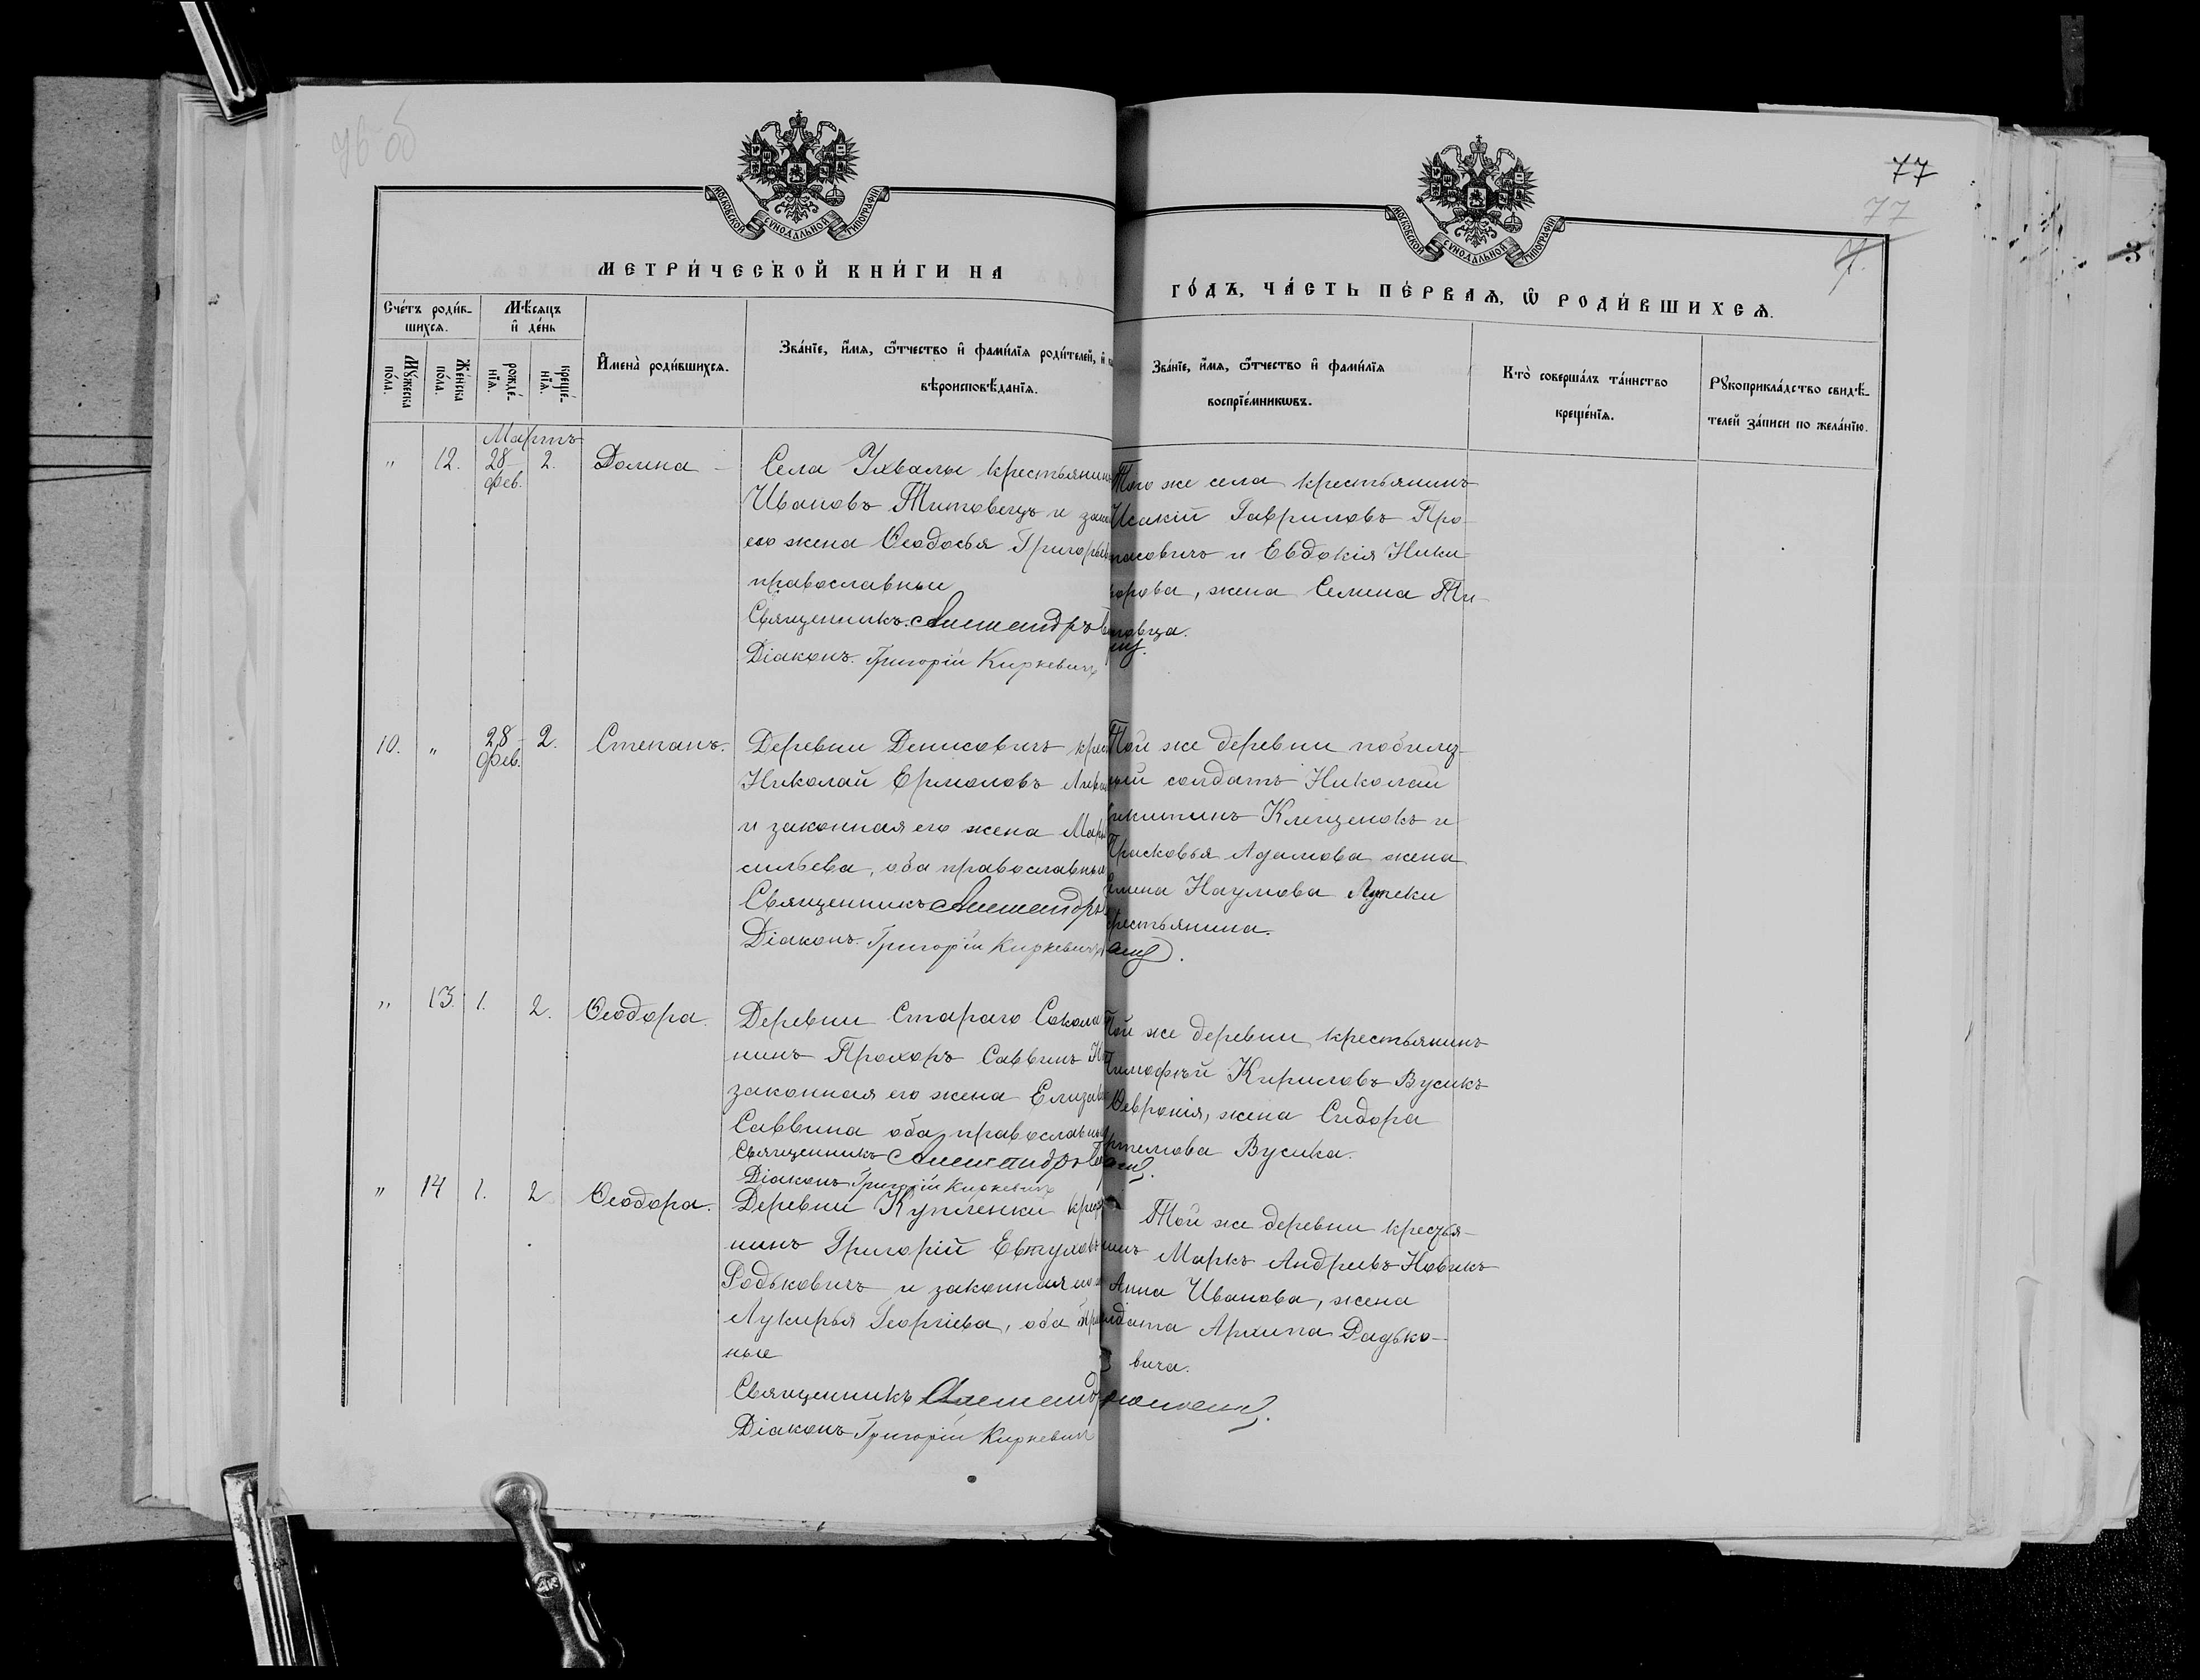 76 об
77
77
7.
МОСКОВСКОЙ СѴНОДАЛЬНОЙ ТИПОГРАФІИ
МОСКОВСКОЙ СѴНОДАЛЬНОЙ ТИПОГРАФІИ
МЕТРИ́ЧЕСКОЙ КНИ́ГИ НА
ГО́ДЪ, ЧА́СТЬ ПЕ́РВАѦ, Ѡ҆ РОДИ́ВШИХСѦ.
Сче́тъ роди́в-
шихсѧ.
Мꙋ́жеска
по́ла.
Же́нска
по́ла.
Мѣ́сѧцъ
и҆ де́нь
рожде́-
нїѧ.
креще́-
нїѧ.
И҆мена̀ роди́вшихсѧ.
Зва́нїе, и҆́мѧ, ѻ҆́тчество и҆ фами́лїѧ роди́телей, и҆
вѣроисповѣ́данїѧ.
Зва́нїе, и҆́мѧ, ѻ҆́тчество и҆ фами́лїѧ
воспрїе́мникѡвъ.
Кто̀ соверша́лъ та́инство
креще́нїѧ.
Рꙋкоприкла́дство свидѣ́-
телей за́писи по жела́нїю.
Мартъ
" 12. 28 фев. 2. Домна
Села Ухвалы крестьянинъ
Ивановъ Титовецъ и зак
его жена Ѳеодосья Григорьев
православные
Священникъ Александръ
Діаконъ Григорій Киркевичъ
Того же села крестьянинъ
Исакій Гавриловъ Про-
пасовичъ и Евдокія Ники-
форова, жена Семена Ти-
товца.
10. " 28 фев. 2. Степанъ.
Деревни Денисовичъ крес
Николай Ермоловъ
и законная его жена Мар
сильева, оба православные
Священникъ Александръ
Діаконъ Григорій Киркевичъ
Той же деревни
солдатъ Николай
Клещенокъ и
Прасковья Адамова жена
Наумова
крестьянина.
" 13. 1. 2. Ѳеодора.
Деревни Стараго Сокола
нинъ Прохоръ Саввинъ
законная его жена Елизав
Саввина оба православные
Священникъ Александръ
Діаконъ Григорій Киркевичъ
Той же деревни крестьянинъ
Тимофѣй Кириловъ Вусикъ
Ѳевронія, жена Сидора
Артемова Вусика.
" 14 1. 2 Ѳеодора.
Деревни Купленки крес
нинъ Григорій Евтуховъ
Родьковичъ и законная его
Лукерья Георгіева, оба пра
ные
Священникъ Александръ
Діаконъ Григорій Киркевичъ
Той же деревни крестья-
нинъ Маркъ Андреевъ Новикъ
Анна Иванова, жена
солдата Архипа Радько-
вича.